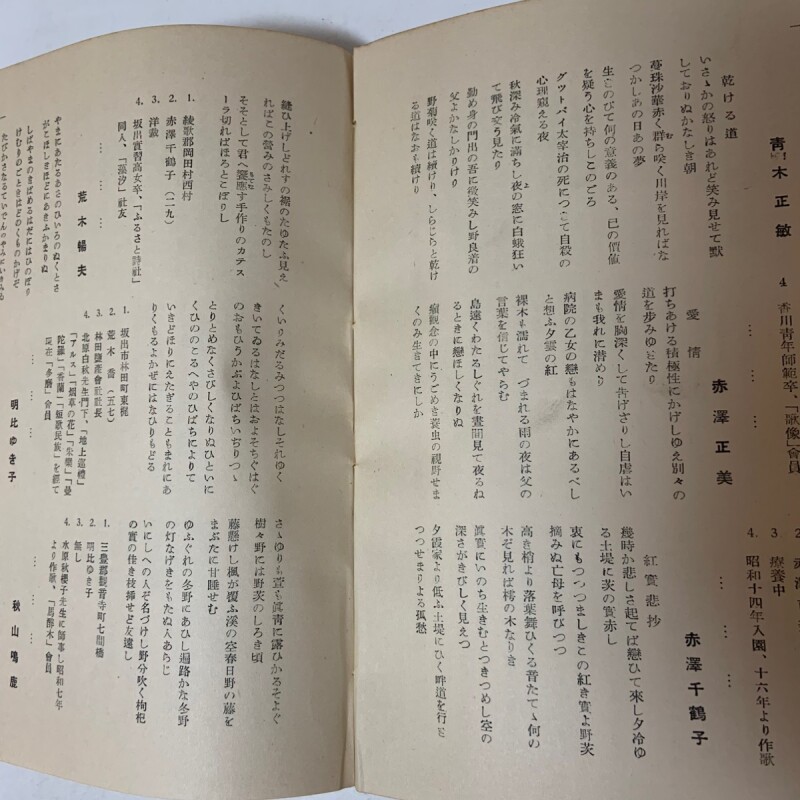 青木正敏
乾ける道
いさゝかの怒りはあれど笑み見せて默
しておりぬかなしき朝
蔓珠沙華赤く群ら咲く川岸を見ればな
つかしあの日あの夢
生きのびて何の意義のある、己の價値
を疑う心を持ちしこのごろ
グットバイ太宰治の死につ
て自殺の
心理窺える夜
秋深み冷氣に滿ちし夜の窓に白蛾狂い
て飛び交う見たり
勤め身の門出の吾に微笑みし野良着の
父よかなしかりけり
野菊咲く道は續けり、しらじらと乾け
る道はなおも續けり
4 香川青年師範卒、「歌像」會員
愛情
赤澤正美
打ちあける積極性にかげしゆえ別々の
道を步みゆきたり
愛情を胸深くして告げざりし自虐はい
まも我れに潜めり
病院の乙女の戀もはなやかにあるべし
と想ふ夕雲の紅
裸木も濡れて
づまれる雨の夜は父の
言葉を信じてやらむ
島遠くわたるしぐれを晝間見て夜るね
るときに戀ほしくなりぬ
癩観念の中にうごめき蓑虫の視野せま
くのみ生きてきにしか
3. 療養中
4. 昭和十四年入園、十六年より作歌
紅實悲抄
赤澤千鶴子
幾時か悲しさ起てば戀ひて來し夕冷ゆ
る土堤に茨の實赤し
衷にもつつつましきこの紅き實よ野茨
摘みぬ亡母を呼びつつ
高き梢より落葉舞ひくる昔たてゝ何の
木ぞ見れば樗の木なりき
眞實にいのち生きむとつきつめし空の
深さがきびしく見えつ
夕霞家より低ふ土堤にひく畔道を行き
つつせまりよる孤愁
縫ひ上げしどれすの裾のたゆたふ見え
ればこの營みのさみしくもたのし
そそとして君へ饗應す手作りのカテス
ーラ切ればほろとこぼりし
1. 綾歌郡岡田村西村
2. 赤澤千鶴子(二九)
3. 洋裁
4. 坂出實習高女卒、「ふるさと詩社」
同人、「藻汐」社友
荒木暢夫
やまにあたるあさのひいろのぬくとさ
がこほしきほどにあきふかまりぬ
しばやまのきばめるはだにはひのぼり
けむりのごときはどのくものかげぞ
くいりみだるみつつはなしそれゆく
きいてゐるはなしとはおよそちぐはぐ
のおもひうかぶよひばちいぢりつゝ
とりとめなくさびしくなりぬひといに
くひののこるへやのひばちによりて
いきどほりにえたぎることもまれにあ
りくもるよかぜにはなひりもどる
1. 坂出市林田町東梶
2. 荒木喬(五七)
3. 林田鹽產會社社長
4. 北原白秋先生門下、「地上巡禮」
「アルス」「烟草の花」「朱欒」「曼
陀羅」「香蘭」「短歌民族」を經て
現在「多磨」會員
明比ゆき子
さゝゆりも萱も眞靑に露ひかるそよぐ
樹々野には野茨のしろき頃
藤懸けし楓が覆ふ溪の空春日野の藤を
まぶたに甘睡せむ
ゆふぐれの冬野にあひし遍路かな冬野
の灯なげきをもたぬ人あらじ
いにしへの人ぞ名づけし野分吹く枸杞
の實の佳き枝挿せど友遠し
1. 三豊郡觀音寺町七間橋
2. 明比ゆき子
3. 無し
4. 水原秋櫻子先生に師事し昭和七年
より作歌、「馬醉木」會員
秋山鳴鹿